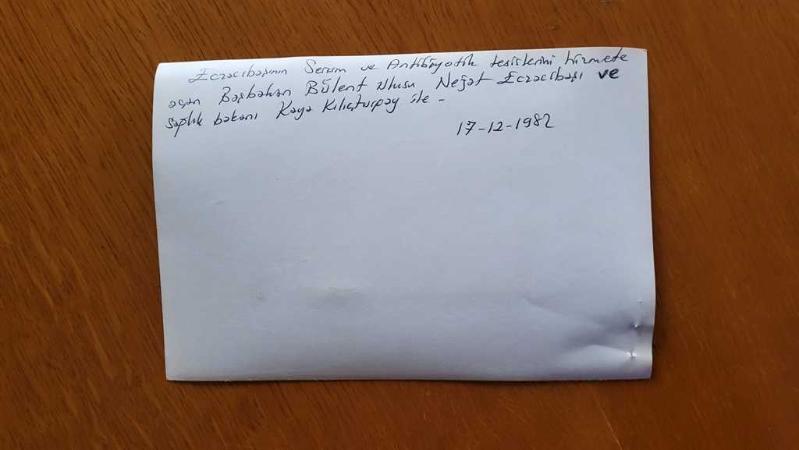 Eczacıbaşının Serum ve Antibiyotik tesislerini hizmete
açan Başbakan Bülent Ulusu Nejat Eczacıbaşı ve
sağlık bakanı Kaya Kılıçturgay ile -
17-12-1982